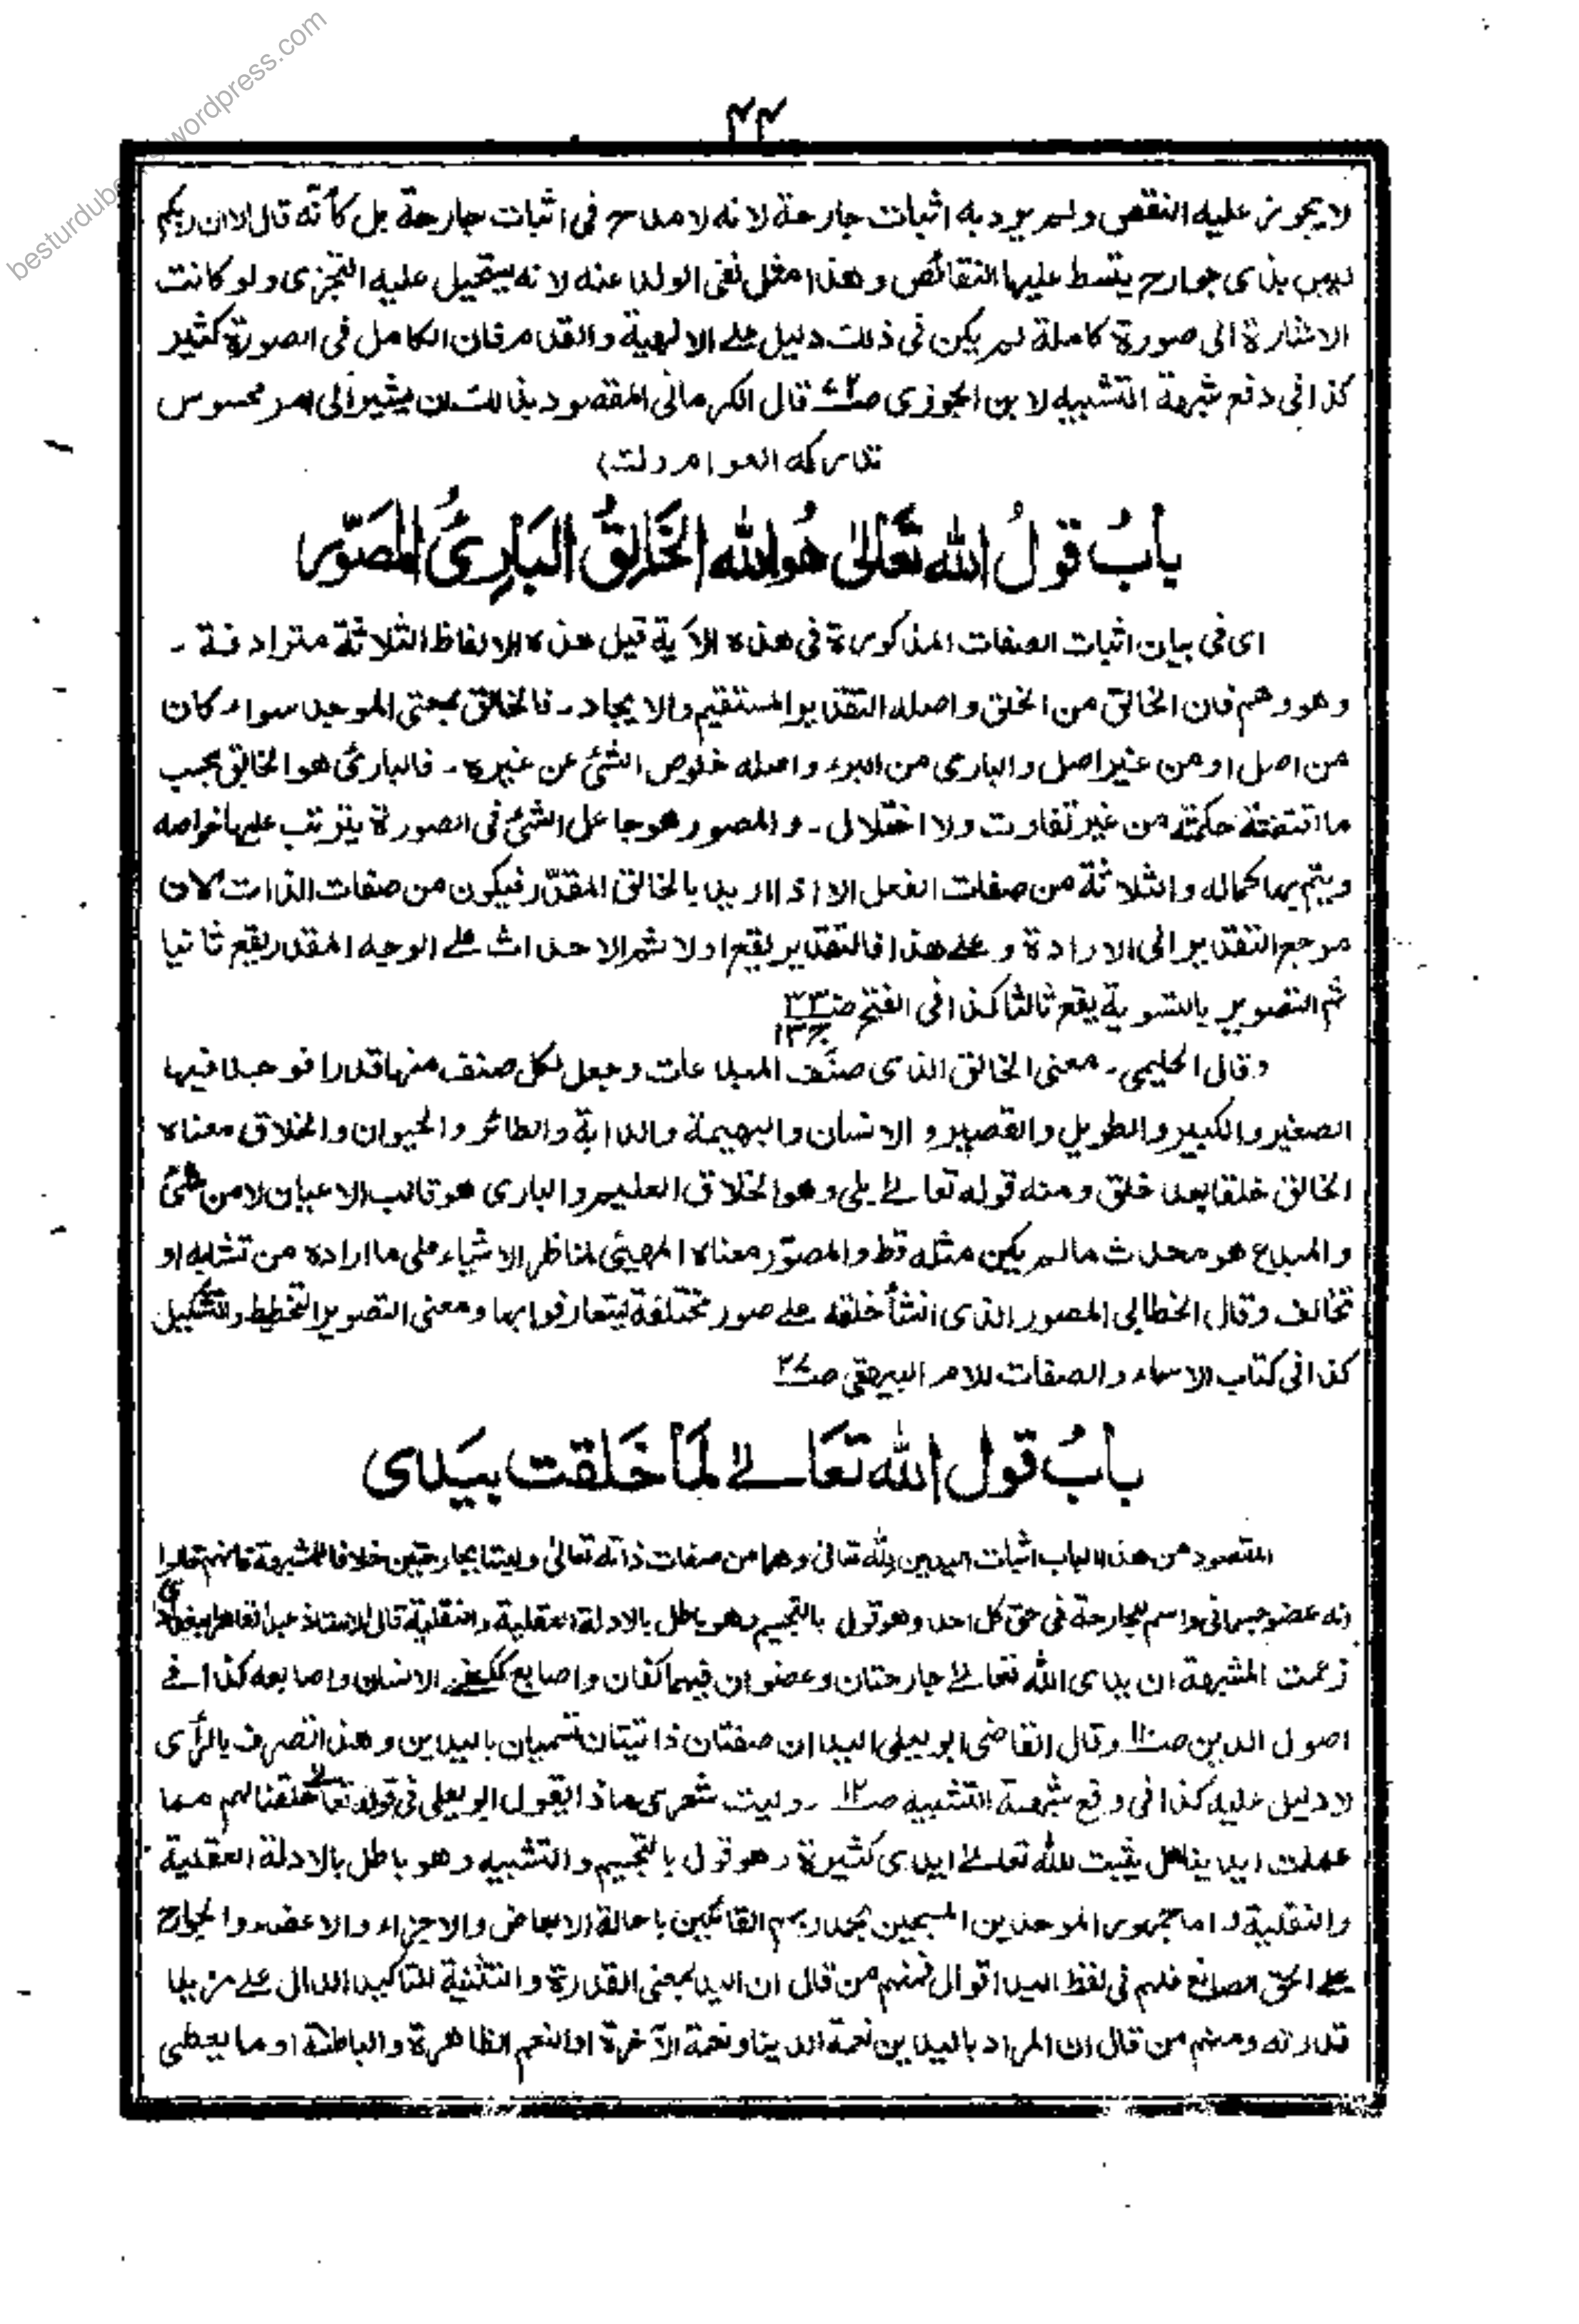 besturdubooks.wordpress.com
۴۴
لا يجوز عليه النقص ولم يرد به اثبات جارحة لانه لا مدح فى اثبات جارحة بل كأنه قال لان ربكم
ليس بذى جوارح يتسلط عليها النقائص وهذا مثل نفى الولد عنه لانه يستحيل عليه التجزى ولو كانت
الاشارة الى صورة كاملة لم يكن فى ذلك دليل على الالهية والقدم فان الكامل فى الصورة كثير
كذا فى دفع شبهة التشبيه لابن الجوزى ص قال الكرمانى المقصود بذلك ان يشير الى امر محسوس
تدركه العوام (ولت)
بابُ قولُ الله تَعَالىٰ هُو الله الخَالِقُ البَارِئُ المصَوّر
اى فى بيان اثبات الصفات المذكورة فى هذه الآية قيل هذه الالفاظ الثلاثة مترادفة ـ
وهو وهم فان الخالق من الخلق واصله التقدير المستقيم والايجاد ـ فالخالق بمعنى الموجد سواء كان
من اصل او من غير اصل والبارى من البرء واصله خلوص الشئ عن غيره ـ فالبارئ هو الخالق بحسب
ما اقتضته حكمته من غير تفاوت ولا اختلال ـ والمصور هو جاعل الشئ فى الصورة يترتب عليها خواصه
ويتم بها كماله والثلاثة من صفات الفعل الا اذا اريد بالخالق المقدّر فيكون من صفات الذات لان
مرجع التقدير الى الارادة وعلى هذا فالتقدير يقع اولا ثم الاحداث على الوجه المقدر يقع ثانيا
ثم التصوير بالتسوية يقع ثالثا كذا فى الفتح ص۳۳۰ ج۱۳
وقال الحليمى ـ معنى الخالق الذى صنّف المبدعات وجعل لكل صنف منها قدرا فوجد فيها
الصغير والكبير والطويل والقصير والانسان والبهيمة والدابة والطائر والحيوان والخلاق معناه
الخالق خلقا بعد خلق ومنه قوله تعالى بلى وهو الخلاق العليم والبارى هو قالب الاعيان لا من شئ
والمبدع هو محدث ما لم يكن مثله قط والمصوّر معناه المهيئ لمناظر الاشياء على ما اراده من تشابه او
تخالف وقال الخطابى المصور الذى انشأ خلقه على صور مختلفة ليتعارفوا بها ومعنى التصوير التخطيط والتشكيل
كذا فى كتاب الاسماء والصفات للامام البيهقى ص۲۷
بابُ قول الله تعَالى لمَا خَلَقت بيَدى
المقصود من هذا الباب اثبات اليدين لله تعالى وهما من صفات ذاته تعالى وليستا بجارحتين خلافا للمشبهة فانهم قالوا
انه عضو جسمانى واسم لجارحة فى حق كل احد وهو قول بالتجسيم وهو باطل بالادلة العقلية والنقلية قال الاستاذ عبد القاهر البغدادى
زعمت المشبهة ان يدى الله تعالى جارحتان وعضوان فيهما كفان واصابع ككفى الانسان واصابعه كذا فى
اصول الدين ص۱۱۰ وقال القاضى ابو يعلى اليدان صفتان ذاتيتان تسميان باليدين وهذا تصرف بالرأى
لا دليل عليه كذا فى دفع شبهة التشبيه ص۱۲ ـ وليت شعرى ماذا يقول ابو يعلى فى قوله تعالى خلقنا لهم مما
عملت ايدينا هل يثبت لله تعالى ايدى كثيرة وهو قول بالتجسيم والتشبيه وهو باطل بالادلة العقلية
والنقلية واما جمهور الموحدين المسبحين بحمد ربهم القائلين باحالة الابعاض والاجزاء والاعضاء والجوارح
على الحق الصانع فلهم فى لفظ اليد اقوال فمنهم من قال ان اليد بمعنى القدرة والتثنية للتاكيد الدال على مزيد
قدرته ومنهم من قال ان المراد باليدين نعمة الدنيا ونعمة الآخرة او النعم الظاهرة والباطنة او ما يعطى